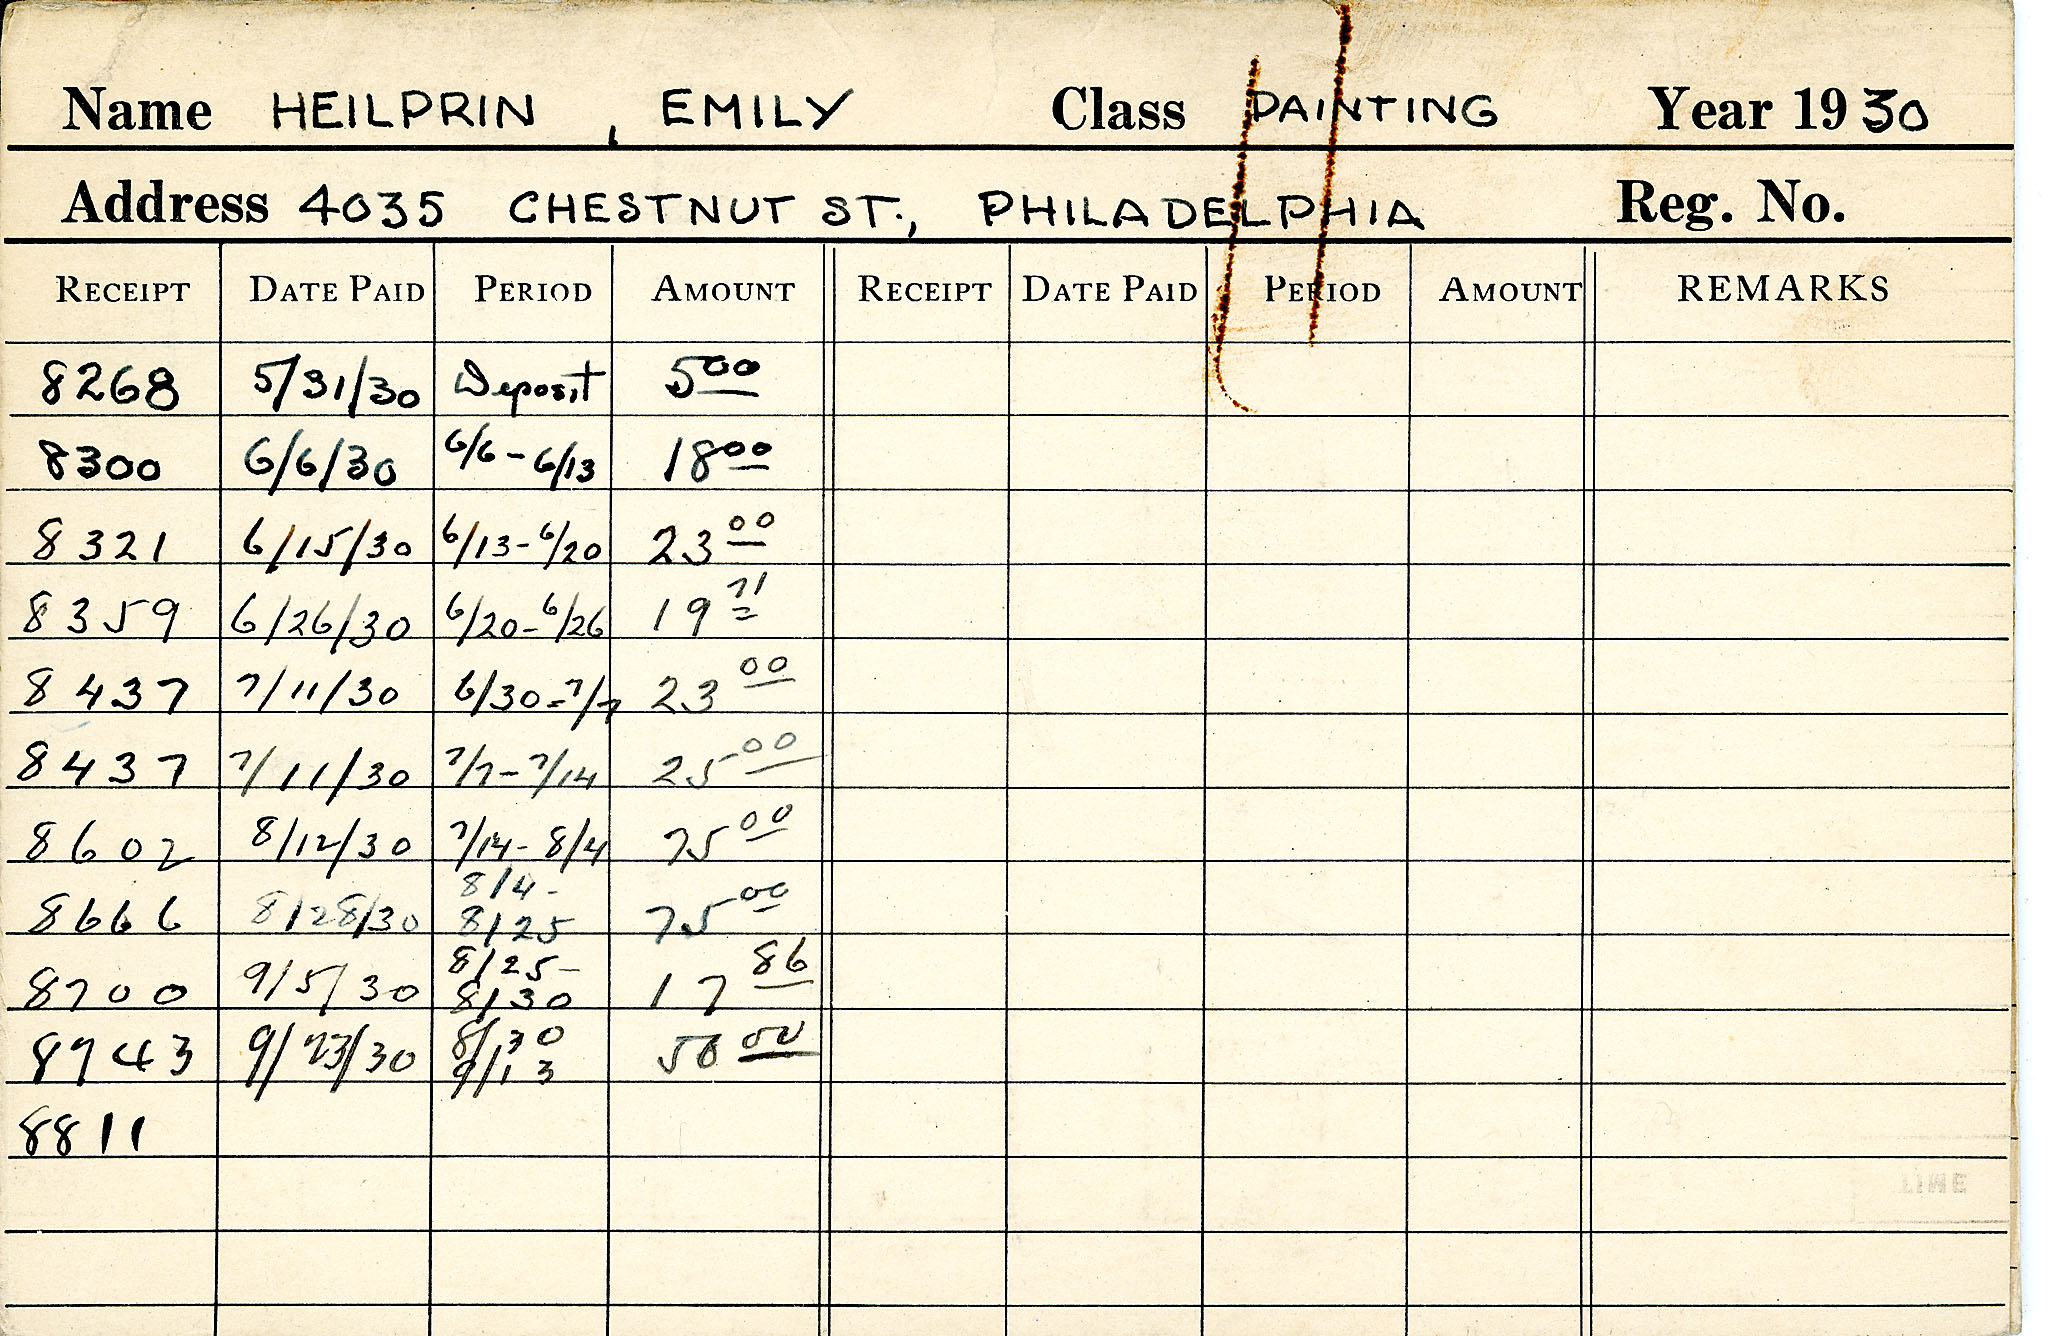 Name HEILPRIN, EMILY Class PAINTING Year 1930
Address 4035 CHESTNUT ST., PHILADELPHIA Reg. No.
RECEIPT DATE PAID PERIOD AMOUNT RECEIPT DATE PAID PERIOD AMOUNT REMARKS
8268 5/31/30 Deposit 5 00
8300 6/6/30 6/6 - 6/13 18 00
8321 6/15/30 6/13 - 6/20 23 00
8359 6/26/30 6/20 - 6/26 19 71
8437 7/11/30 6/30 - 7/7 23 00
8437 7/11/30 7/7 - 7/14 25 00
8602 8/12/30 7/14 - 8/4 75 00
8666 8/28/30 8/4 - 8/25 75 00
8700 9/5/30 8/25 - 8/30 17 86
8743 9/23/30 8/30 9/13 50 00
8811